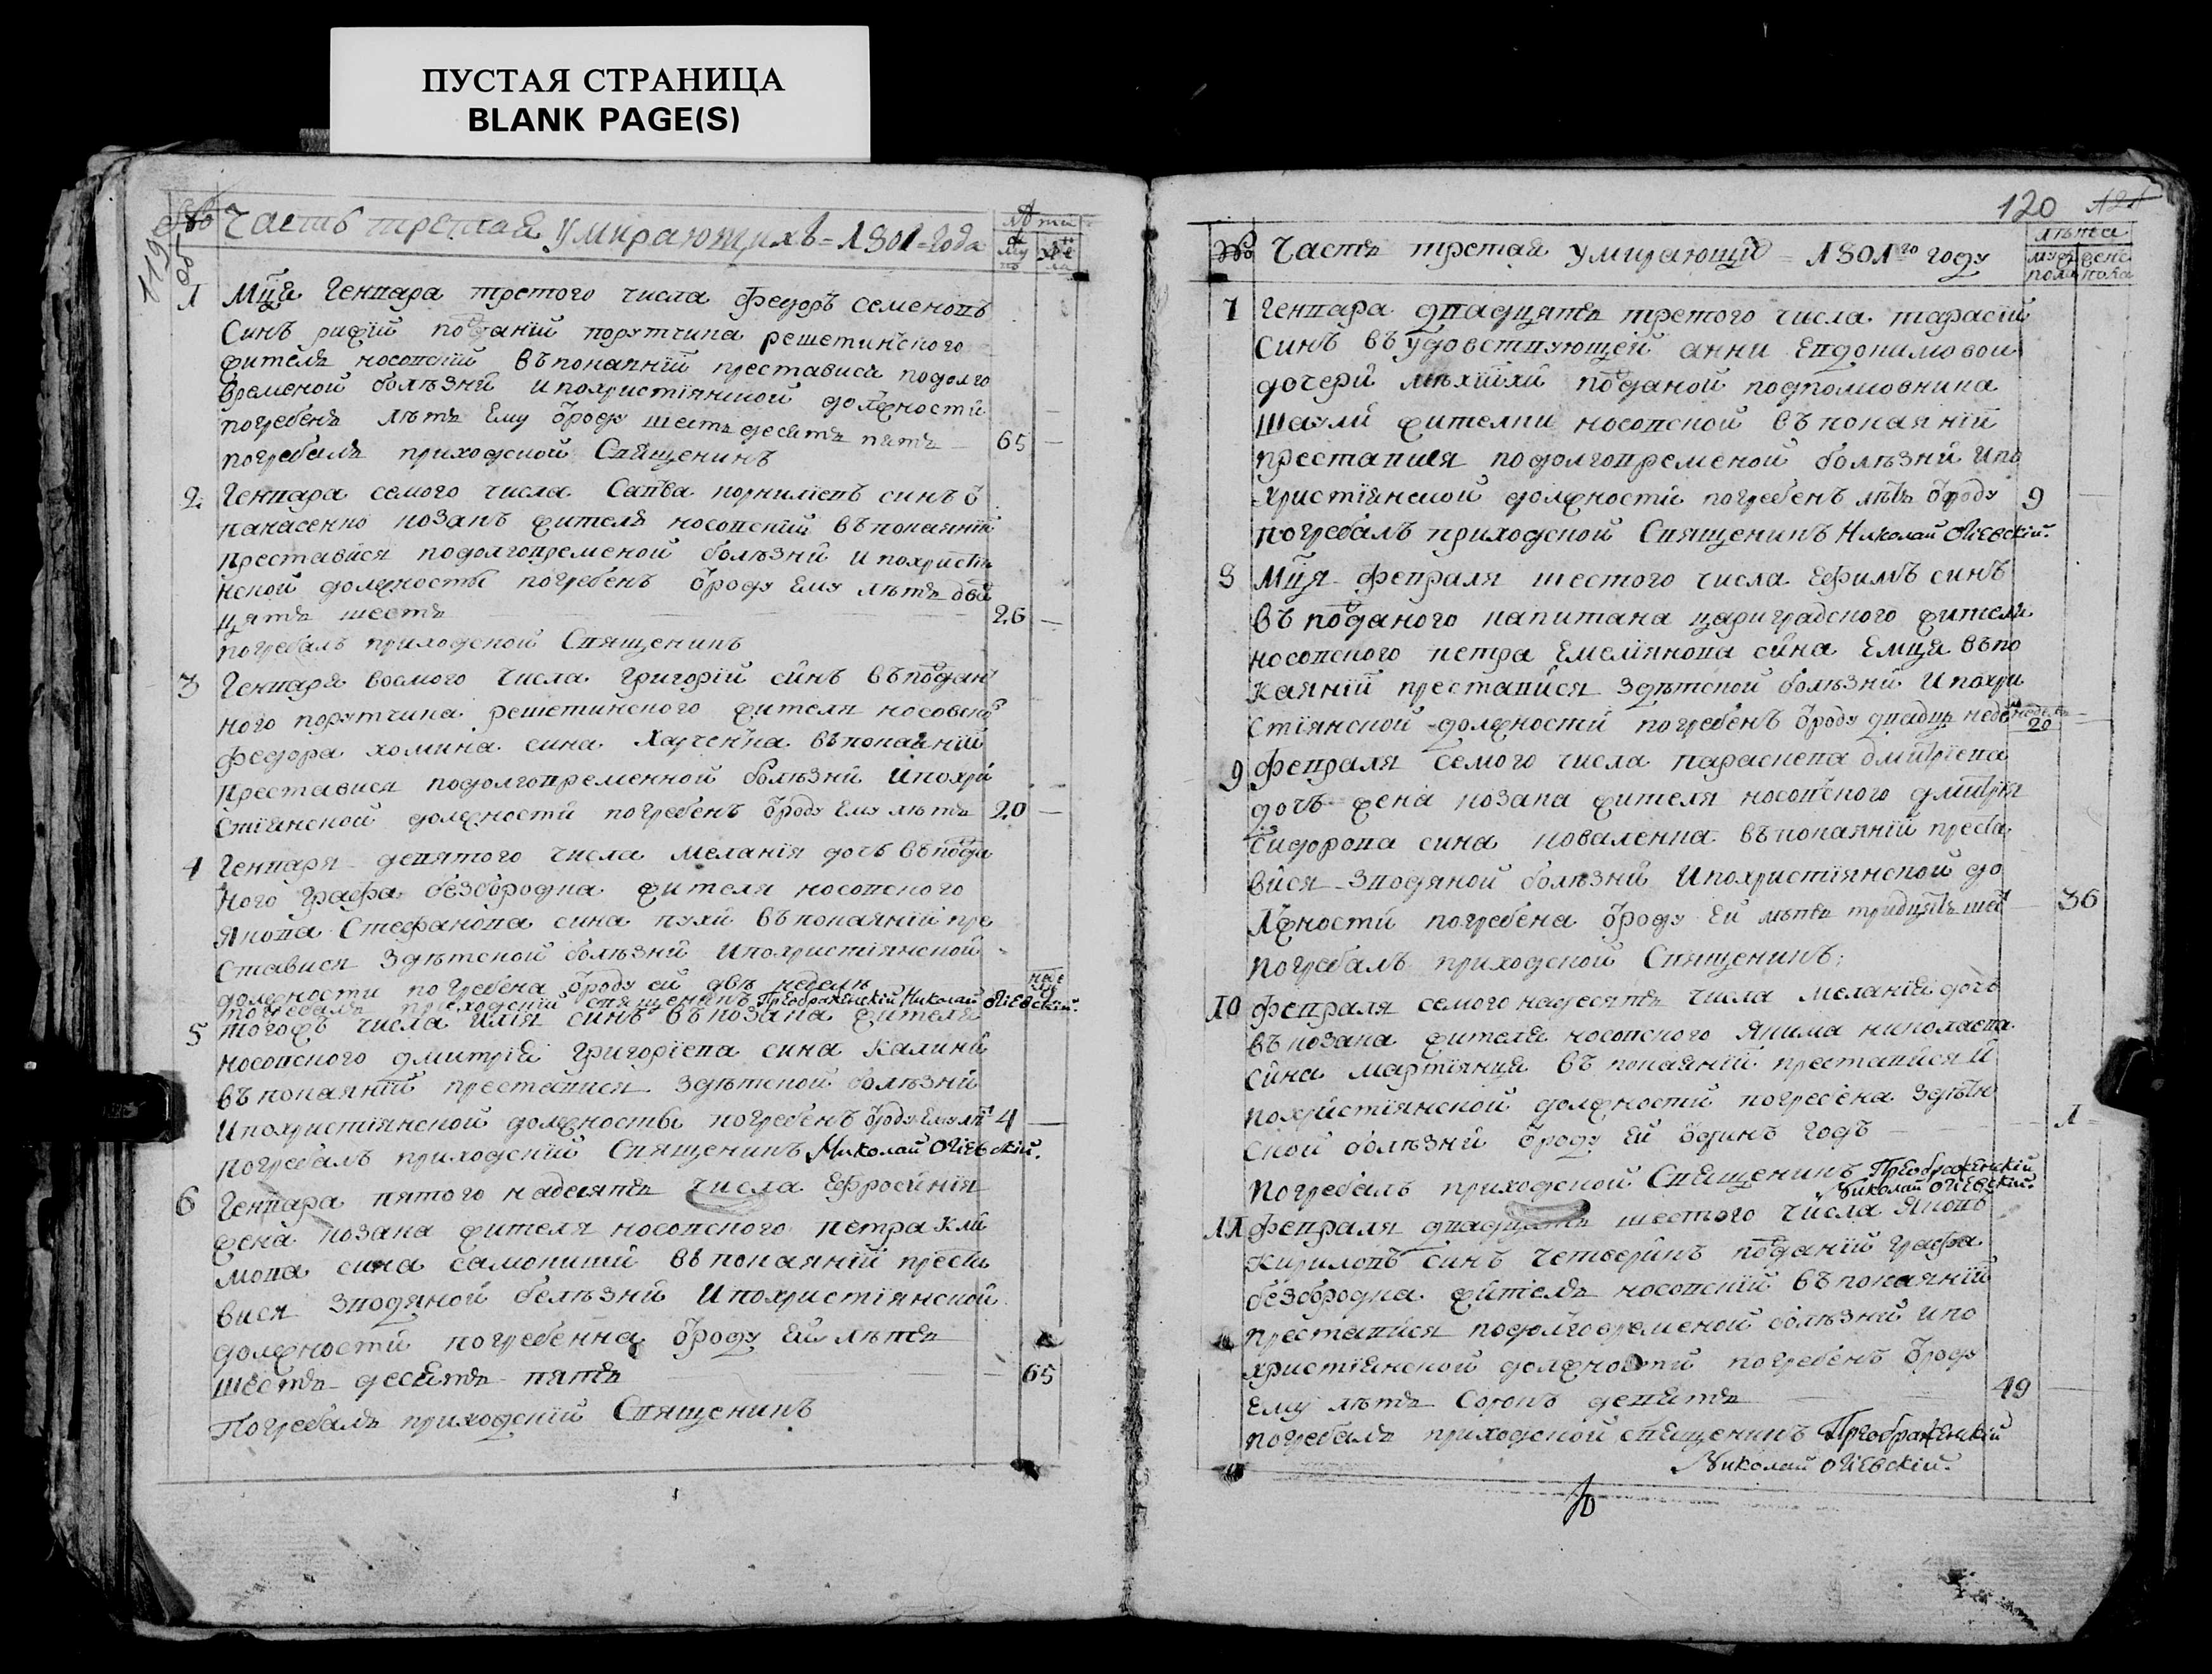 ПУСТАЯ СТРАНИЦА
BLANK PAGE(S)
119 об
№ Часть третая умирающихъ = 1801 = Года
1 Мця Генвара третого числа Федоръ семеновъ
Синъ подданій порутчика решетинского
жителъ носовскій въ покаянній преставися подолго
временой болѣзни и похристіянской должности
погребенъ лѣтъ Ему ѿроду шестъ десятъ пятъ 65 —
погребалъ приходской Священикъ
2 Генвара семого числа Савва корниліевъ синъ
панасенко козакъ жителъ носовскій въ покаяній
преставися подолговременой болѣзни и похристія
нской должносты погребенъ ѿроду Ему лѣтъ два
цятъ шестъ — 26 —
погребалъ приходской Священикъ
3 Генваря восмого числа Григорій синъ въ поддан
ного порутчика решетинского жителя носовского
Федора хомина сина Харченка въ покаяній
преставися подолговременной болѣзни и похри
стіянской должности погребенъ ѿроду Ему лѣтъ 20 —
4 Генваря девятого числа меланія дочъ въ подда
ного Графа безбородка жителя носовского
Якова Стефанова сина пухи въ покаяній пре
ставися здѣтской болѣзни и похристіянской
должности погребена ѿроду ей двѣ неделѣ
погребалъ приходскій священикъ Преображенскій Николай
5 тогожъ числа илія синъ въ козака жителя
носовского дмитрія Григоріева сина калини
въ покаяній преставися здѣтской болѣзни
и похристіянской должносты погребенъ ѿроду Ему лѣтъ 4 —
погребалъ приходскій Священикъ Николай
6 Генвара пятого надесятъ числа Ефросинія
жена козака жителя носовского петра кли
мова сина самокиши въ покаяній преста
вися зводяной болѣзни и похристіянской
должности погребенна ѿроду Ей лѣтъ
шестъ десятъ пятъ — 65
Погребалъ приходскій Священикъ
120 121
№ Частъ третая умирающій = 1801го году
лѣта
муж полъ жене пола
7 Генвара двадцятъ третого числа тарасій
синъ въ удовствующей анни Евдокимовой
дочери подданой подполковника
жителки носовской въ покаяній
преставися подолговременой болѣзни и по
христіянской должности погребенъ лѣтъ ѿроду 9 —
погребалъ приходской Священикъ Николай
8 Мця Февраля шестого числа Ефимъ синъ
въ подданого капитана цариградского жителя
носовского петра Емеліянова сина Емця въ по
каяній преставися здѣтской болѣзни и похри
стіянской должности погребенъ ѿроду двадцъ неде неделъ 20 —
9 Февраля семого числа параскева дмитріева
дочъ жена козака жителя носовского дмитрія
Сидорова сина коваленка въ покаяній преста
вися зводяной болѣзни и похристіянской до
лжности погребена ѿроду Ей лѣтъ тридцятъ шес — 36
погребалъ приходской Священикъ
10 Февраля семого надесятъ числа меланія дочъ
въ козака жителя носовского Якима николаева
сина мартіянця въ покаяній преставися и
похристіянской должности погребена здѣт
ской болѣзни ѿроду Ей ѿдинъ годъ — 1
погребалъ приходской Священикъ Преображенскій
Николай
11 Февраля двадцятъ шестого числа Яковъ
Кириловъ синъ четверикъ подданій графа
безбородка жителъ носовскій въ покаяній
преставися подолговременой болѣзни и по
христіянской должности погребенъ ѿроду
Ему лѣтъ Сорокъ девятъ — 49 —
погребалъ приходской священикъ Преображенскій
Николай